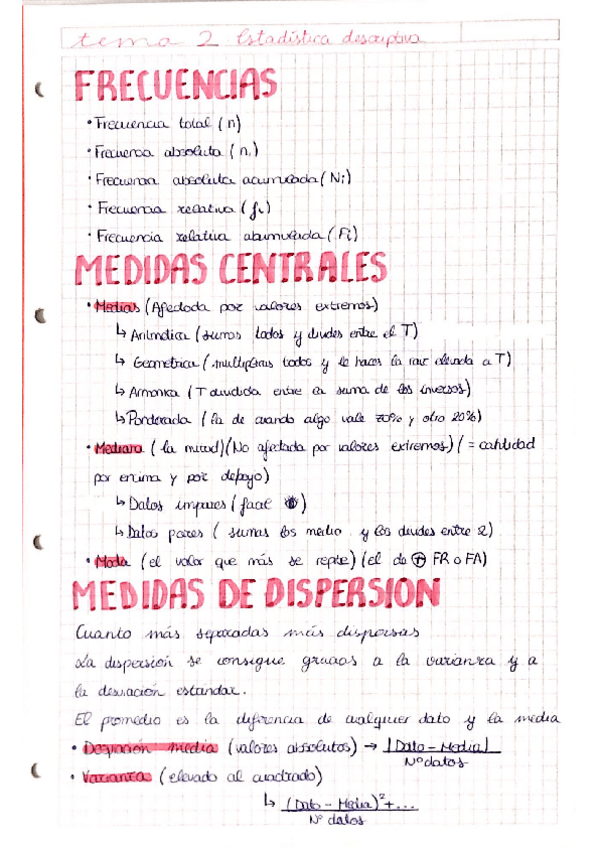 tema 2 Estadística descriptiva
FRECUENCIAS
• Frecuencia total (n)
• Frecuencia absoluta (ni)
• Frecuencia absoluta acumulada (Ni)
• Frecuencia relativa (fi)
• Frecuencia relativa abumulada (Fi)
MEDIDAS CENTRALES
• Medias (Afectada por valores extremos)
↳ Aritmética (sumas todos y divides entre el T)
↳ Geometrica (multiplicas todos y le haces la raíz elevada a T)
↳ Armonica (T dividida entre la suma de los inversos)
↳ Ponderada (la de cuando algo vale 70% y otro 20%)
• Mediana (la mitad)(No afectada por valores extremos)(= cantidad
por encima y por debajo)
↳ Datos impares (facil)
↳ Datos pares (sumas los medio y los divides entre 2)
• Moda (el valor que más se repite)(el de ⊕ FR o FA)
MEDIDAS DE DISPERSION
Cuanto más separadas más dispersas
La dispersión se consigue gracias a la varianza y a
la desviación estándar.
El promedio es la diferencia de cualquier dato y la media
• Desviación media (valores absolutos) → |Dato - Media|
Nº datos
• Varianza (elevado al cuadrado)
↳ (Dato - Media)²+...
Nº datos